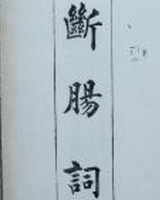 斷腸詞